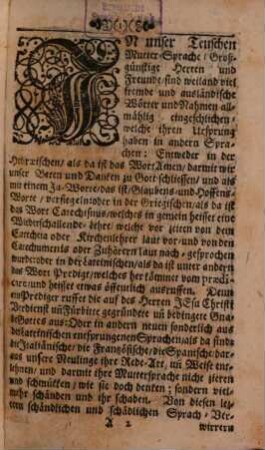 IN unser Teutschen
Mutter-Sprache / Groß-
günstige Herren und
Freunde sind weiland viel
fremde und ausländische
Wörter und Nahmen all-
mählig eingeschlichen /
welche ihren Ursprung
haben in andern Spra-
chen: Entweder in der
Hebreischen / als da ist das Wort Amen / darmit wir
unser Beten und Dancken zu Gott schliessen / und als
mit einem Ja-Worte / das ist / Glaubens- und Hoffens-
Worte / versiegeln: oder in der Griegischen / als da ist
das Wort Catechismus / welches in gemein heisset eine
Wiederschallende- / welche vor zeiten von dem
Catecheta oder Kirchenlehrer laut vor / und von den
Catechumenis oder Zuhörern laut nach-gesprochen
wurde: oder in der Lateinischen / als da ist unter andern
das Wort Predig / welches her kömmet vom prædi-
ciren / und heisset etwas öffentlich ausruffen. Denn
ein Prediger ruffet die auf des Herren JEsu Christi
Verdienst uñ Fürbitte gegründete uñ bedingete Gna-
de Gottes aus: Oder in andern neuen sonderlich aus
der Lateinischen entsprungenen Sprachen / als da sind
die Italiänische / die Französische / die Spanische / dar-
aus unsere Neulinge ihre Rede-Art, uñ Weise ent-
lehnen / und darmit ihre Muttersprache nicht zieren
und schmücken / wie sie doch dencken; sondern viel-
mehr schänden und ihr schaden. Von diesen letz-
tern schändlichen und schädlichen Sprach-Ver-
A 2 wirrern